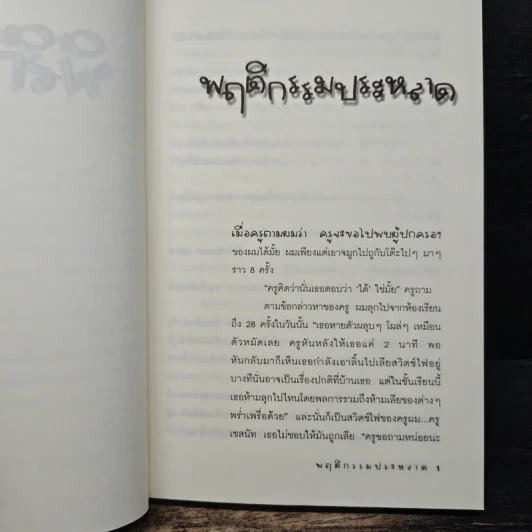 พฤติกรรมประหลาด
เมื่อครูถามผมว่า ครูจะขอไปพบผู้ปกครอง
ของผมได้มั้ย ผมเพียงแต่เอาจมูกไปถูกับโต๊ะไปๆ มาๆ
ราว 8 ครั้ง
"ครูคิดว่านั่นเธอตอบว่า 'ได้' ใช่มั้ย" ครูถาม
ตามข้อกล่าวหาของครู ผมลุกไปจากห้องเรียน
ถึง 28 ครั้งในวันนั้น "เธอหายตัวผลุบๆ โผล่ๆ เหมือน
ตัวหมัดเลย ครูหันหลังให้เธอแค่ 2 นาที พอ
หันกลับมาก็เห็นเธอกำลังเอาลิ้นไปเลียสวิตช์ไฟอยู่
บางทีนั่นอาจเป็นเรื่องปกติที่บ้านเธอ แต่ในชั้นเรียนนี้
เธอห้ามลุกไปไหนโดยพลการรวมถึงห้ามเลียของต่างๆ
พร่ำเพรื่อด้วย" และนั่นก็เป็นสวิตช์ไฟของครูผม...ครู
เชสนัท เธอไม่ชอบให้มันถูกเลีย "ครูขอถามหน่อยนะ
พฤติกรรมประหลาด 1